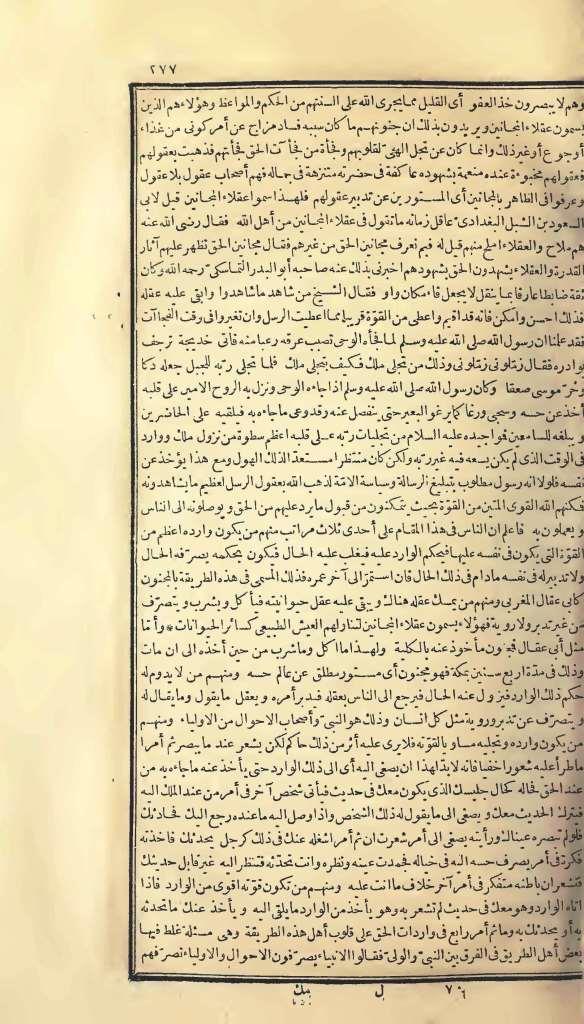 ٢٧٧
وهم لا يبصرون خذ العفو أى القليل مما يجرى الله على السنتهم من الحكم والمواعظ وهؤلاء هم الذين
يسمون عقلاء المجانين ويريدون بذلك ان جنونهم ما كان سببه فساد مزاج عن أمر كونى من غذاء
أوجوع أو غير ذلك وانما كان عن تجلى الهىّ لقلوبهم وفجأة من فجآت الحق فجأتهم فذهبت بعقولهم
فعقولهم مخبوءة عنده منعمة بشهوده عاكفة فى حضرته متنزهة فى جماله فهم أصحاب عقول بلا عقول
وعرفوا فى الظاهر بالمجانين أى المستورين عن تدبير عقولهم فلهذا سموا عقلاء المجانين قيل لابى
السعود بن الشبل البغدادىّ عاقل زمانه ما تقول فى عقلاء المجانين من أهل الله فقال رضى الله عنه
هم ملاح والعقلاء املح منهم قيل له فبم نعرف مجانين الحق من غيرهم فقال مجانين الحق تظهر عليهم آثار
القدرة والعقلاء يشهدون الحق بشهودهم اخبرنى بذلك عنه صاحبه أبو البدر التماسكىّ رحمه الله وكان
ثقة ضابطا عارفا بما ينقل لا يجعل فاء مكان واو فقال الشيخ من شاهد ما شاهدوا وابقى عليه عقله
فذلك احسن وامكن فانه قد اقيم واعطى من القوّة قريبا مما اعطيت الرسل وان تغيروا فى وقت الفجآت
فقد علمنا ان رسول الله صلى الله عليه وسلم لما فجأه الوحى تصبب عرقه رعبا منه فأتى خديجة ترجف
بوادره فقال زمّلونى زمّلونى وذلك من تجلى ملك فكيف بتجلى ملك فلما تجلى ربه للجبل جعله دكا
وخرّ موسى صعقا وكان رسول الله صلى الله عليه وسلم اذا جاءه الوحى ونزل به الروح الامين على قلبه
أخذ عن حسه وسجى ورغا كما يرغو البعير حتى ينفصل عنه وقد وعى ما جاءه به فيلقيه على الحاضرين
ويبلغه للسامعين فواجيده عليه السلام من تجليات ربه على قلبه اعظم سطوة من نزول ملك ووارد
فى الوقت الذى لم يكن يسعه فيه غير ربه ولكن كان منتظرا مستعدّا لذلك الهول ومع هذا يؤخذ عن
نفسه فلولا انه رسول مطلوب بتبليغ الرسالة وسياسة الامّة لذهب الله بعقول الرسل لعظيم ما يشاهدونه
فمكنهم الله القوى المتين من القوّة بحيث يتمكنون من قبول ما يرد عليهم من الحق ويوصلونه الى الناس
ويعملون به فاعلم ان الناس فى هذا المقام على أحدى ثلاث مراتب منهم من يكون وارده اعظم من
القوّة التى يكون فى نفسه عليها فيحكم الوارد عليه فيغلب عليه الحال فيكون بحكمه يصرّفه الحال
ولا تدبير له فى نفسه مادام فى ذلك الحال فان استمرّ الى آخر عمره فذلك المسمى فى هذه الطريقة بالجنون
كابى عقال المغربى ومنهم من يمسك عقله هناك ويبقى عليه عقل حيوانيته فيأكل ويشرب ويتصرّف
من غير تدبر ولا روية فهؤلاء يسمون عقلاء المجانين لتناولهم العيش الطبيعى كسائر الحيوانات * وأمّا
مثل أبى عقال فمجنون مأخوذ عنه بالكلية ولهذا ما اكل وما شرب من حين أخذه الى ان مات
وذلك فى مدّة اربع سنين بمكة فهو مجنون أى مستور مطلق عن عالم حسه ومنهم من لا يدوم له
حكم ذلك الوارد فيزول عنه الحال فيرجع الى الناس بعقله فيدبر أمره ويعقل ما يقول وما يقال له
ويتصرّف عن تدبر وروية مثل كل انسان وذلك هو النبىّ وأصحاب الاحوال من الاولياء ومنهم
من يكون وارده وتجليه مساويا لقوّته فلا يرى عليه أثر من ذلك حاكم لكن يشعر عند ما يبصر ثم أمرا
ما طرأ عليه شعورا خفيا فانه لابدّ لهذا ان يصغى اليه أى الى ذلك الوارد حتى يأخذ عنه ما جاءه به من
عند الحق فحاله كحال جليسك الذى يكون معك فى حديث فيأتى شخص آخر فى أمر من عند الملك اليه
فيترك الحديث معك ويصغى الى ما يقول له ذلك الشخص واذا وصل اليه ما عنده رجع اليك فحادثك
فلو لم تبصره عيناك ورأيته يصغى الى أمر شعرت ان ثم أمر اشغله عنك فى ذلك كرجل يحدثك فاخذته
فكرة فى أمر يصرف حسه اليه فى خياله فجمدت عينه ونظره وانت تحدثه فتنظر اليه غير قابل حديثك
فتشعر ان باطنه متفكر فى أمر آخر خلاف ما انت عليه ومنهم من تكون قوّته اقوى من الوارد فاذا
اتاه الوارد وهو معك فى حديث لم تشعر به وهو يأخذ من الوارد ما يلقى اليه ويأخذ عنك ما تحدثه
به أو يحدثك به وما ثم أمر رابع فى واردات الحق على قلوب أهل هذه الطريقة وهى مسئلة غلط فيها
بعض أهل الطريق فى الفرق بين النبىّ والولىّ فقالوا الانبياء يصرّفون الاحوال والاولياء تصرّفهم
ل
مك